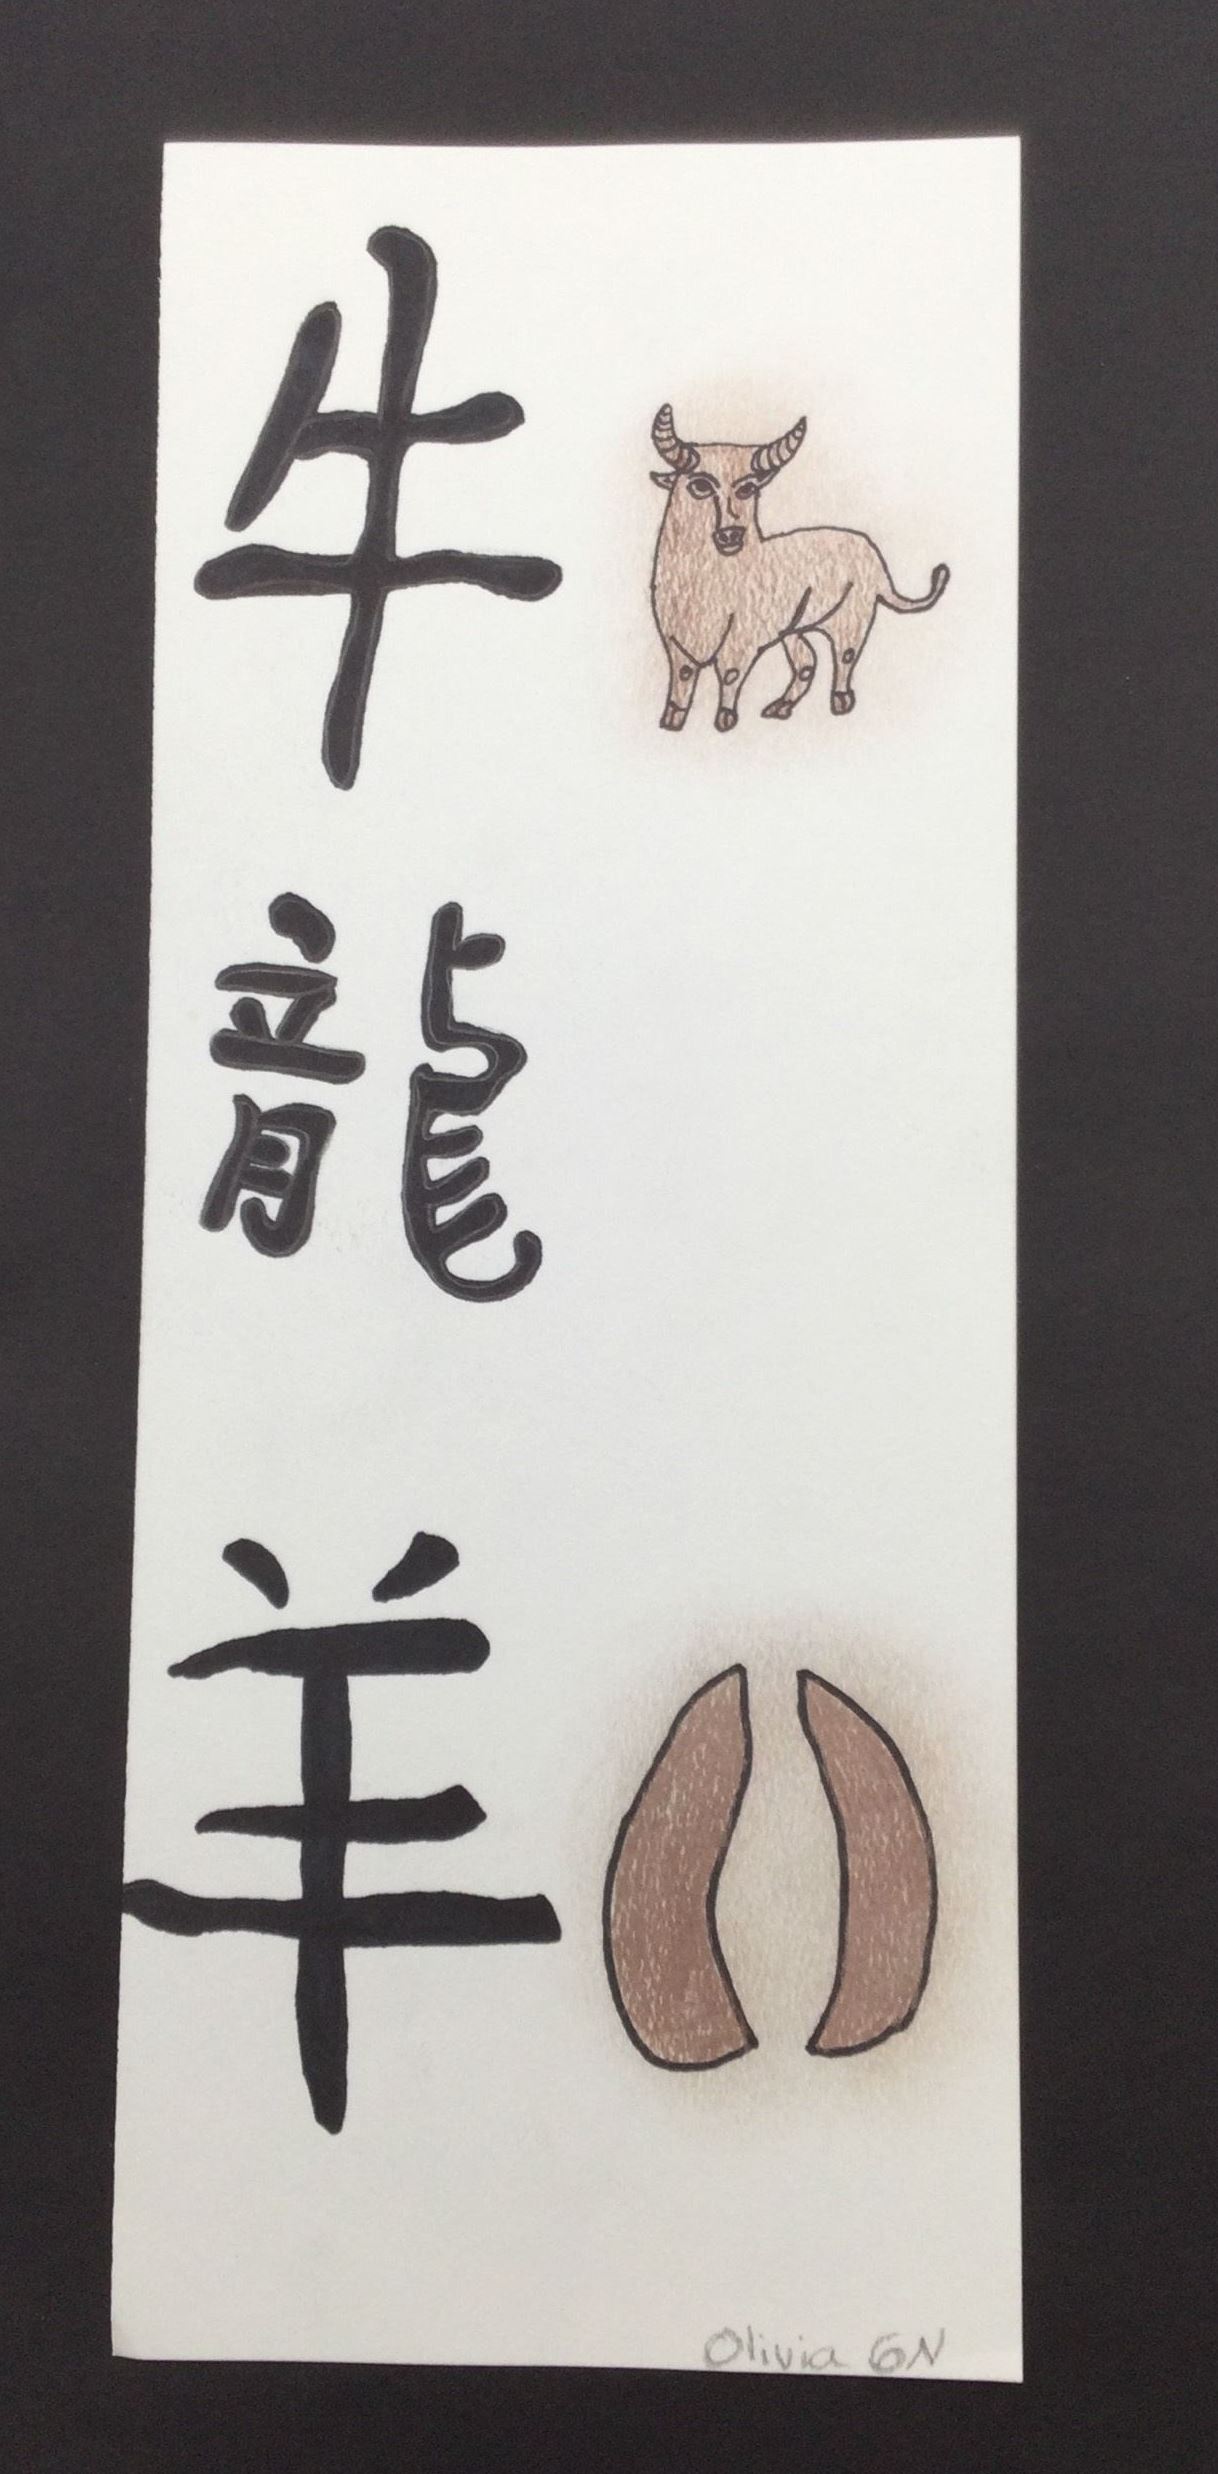 牛
龍
羊
Olivia 6N